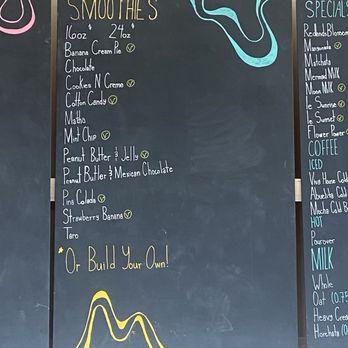 SMOOTHIES
16oz $ 24oz $
Banana Cream Pie
Chocolate
Cookies N Creme
Cotton Candy
Matcha
Mint Chip
Peanut Butter & Jelly
Peanut Butter & Mexican Chocolate
Pina Colada
Strawberry Banana
Taro
*Or Build Your Own!
SPECIALS
Matchata
Mermaid MILK
Moon MILK
le Sunrise
le Sunset
Flower Power
COFFEE
ICED
Viva House Cold
Abuelita Cold
Mocha Cold B
HOT
P
Pourover
MILK
Whole
Oat (0.75
Heavy Cream
Horchata (0